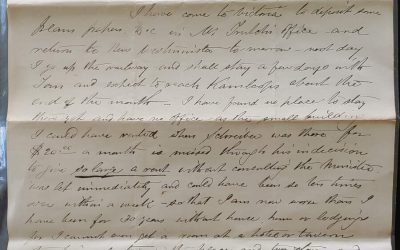 I have come to Victoria to deposit some
Plans papers &c in Mr Trutch's office - and
return to New Westminster to morrow - next day
I go up the railway and shall stay a few days with
Tom and wish to reach Kamloops about the
end of the month - I have found no place to stay
there yet and have no office as the small building
I could have rented when Schreiber was there for
$20.00 a month is missed through his indecision
to give so large a rent without consulting the Minister
was let immediately and could have been so ten times
over within a week - so that I am now worse than I
have been for 30 years without house home or lodgings
for I cannot even get a room at a hotel or taverns